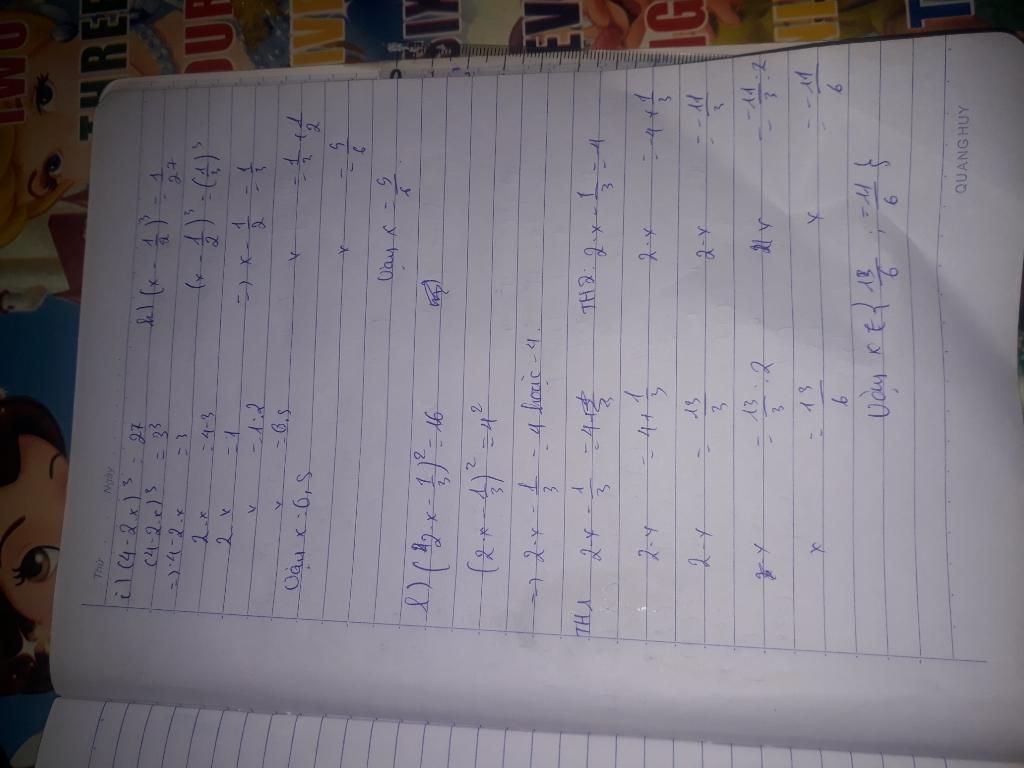 Thứ
Ngày
i) (4-2x)³ = 27
(4-2x)³ = 3³
=> 4-2x = 3
2x = 4-3
2x = 1
x = 1:2
x = 0,5
Vậy x = 0,5
k) (x - 1/2)³ = 1/27
(x - 1/2)³ = (1/3)³
=> x - 1/2 = 1/3
x = 1/3 + 1/2
x = 5/6
Vậy x = 5/6
l) (2x - 1/3)² = 16
(2x - 1/3)² = 4²
=> 2x - 1/3 = 4 hoặc -4
TH1 2x - 1/3 = 4
2x = 4+1/3
2x = 13/3
x = 13/3 : 2
x = 13/6
TH2: 2x - 1/3 = -4
2x = -4+1/3
2x = -11/3
x = -11/3 : 2
x = -11/6
Vậy x ∈ {13/6 ; -11/6}
QUANG HUY
TWO
THREE